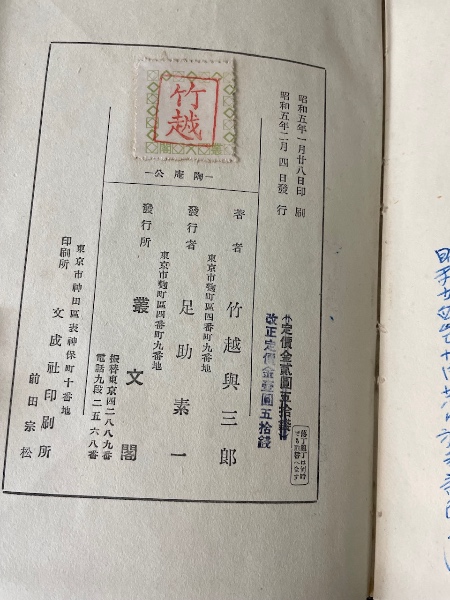 昭和五年一月廿八日印刷
昭和五年二月四日發行
定價金貳圓五拾錢
改正定價金壹圓五拾錢
竹越
陶庵公
著者
竹越與三郎
東京市麴町區四番町九番地
發行者
足助素一
東京市麴町區四番町九番地
發行所
叢文閣
振替東京四二八八九番
電話九段二五六八番
東京市神田區表神保町十番地
印刷所
文成社印刷所
前田宗松